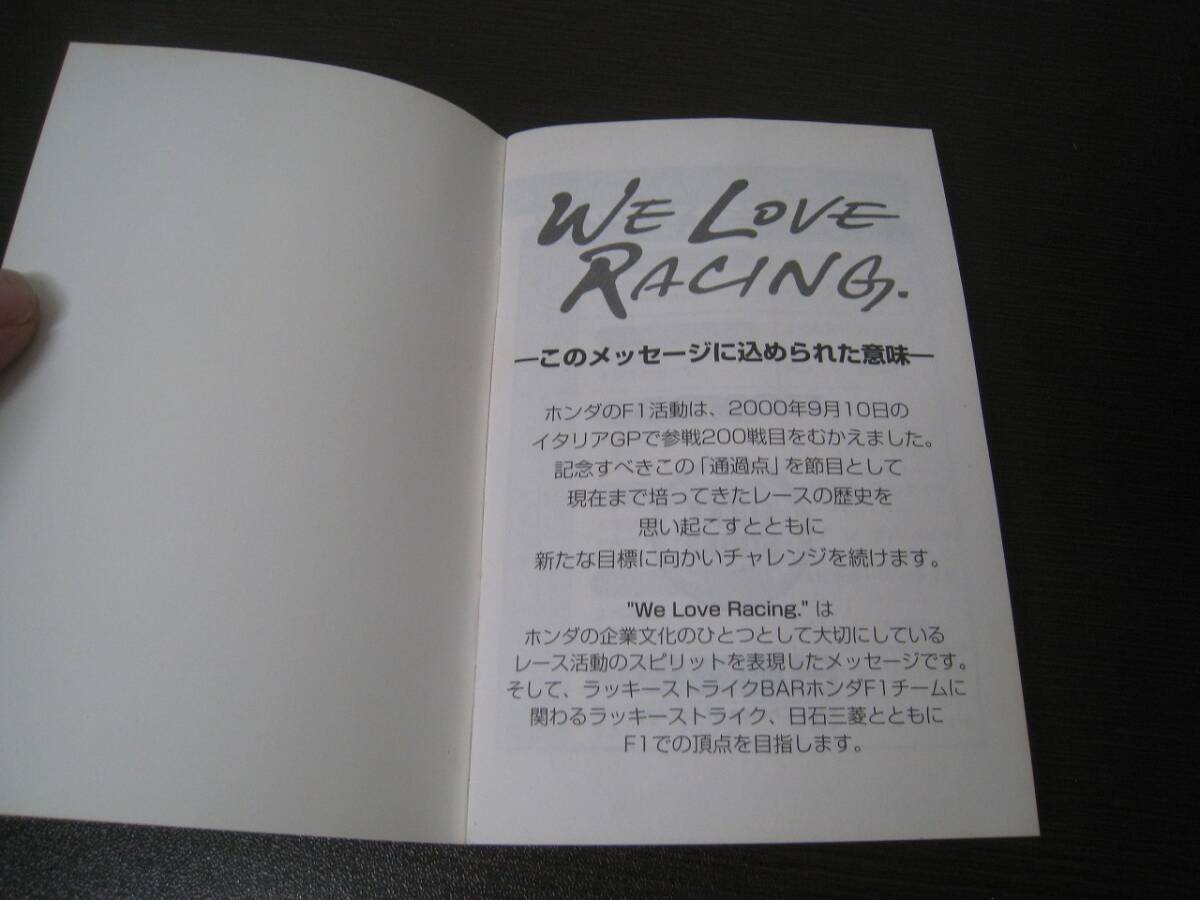 WE LOVE
RACING.
―このメッセージに込められた意味―
ホンダのF1活動は、2000年9月10日の
イタリアGPで参戦200戦目をむかえました。
記念すべきこの「通過点」を節目として
現在まで培ってきたレースの歴史を
思い起こすとともに
新たな目標に向かいチャレンジを続けます。
"We Love Racing." は
ホンダの企業文化のひとつとして大切にしている
レース活動のスピリットを表現したメッセージです。
そして、ラッキーストライクBARホンダF1チームに
関わるラッキーストライク、日石三菱とともに
F1での頂点を目指します。